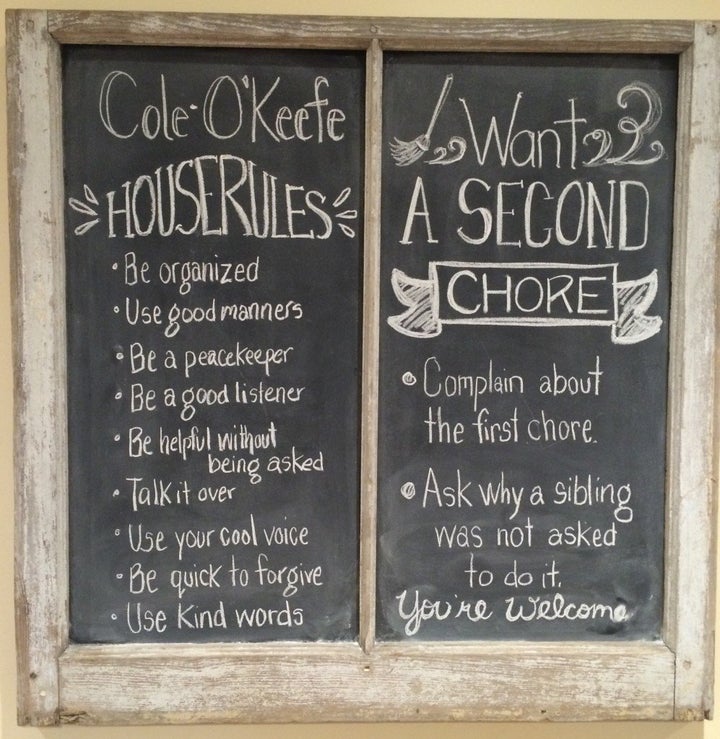 Cole-O'Keefe
HOUSERULES
• Be organized
• Use good manners
• Be a peacekeeper
• Be a good listener
• Be helpful without
being asked
• Talk it over
• Use your cool voice
• Be quick to forgive
• Use Kind words
Want
A SECOND
CHORE
• Complain about
the first chore.
• Ask why a sibling
was not asked
to do it.
You're Welcome